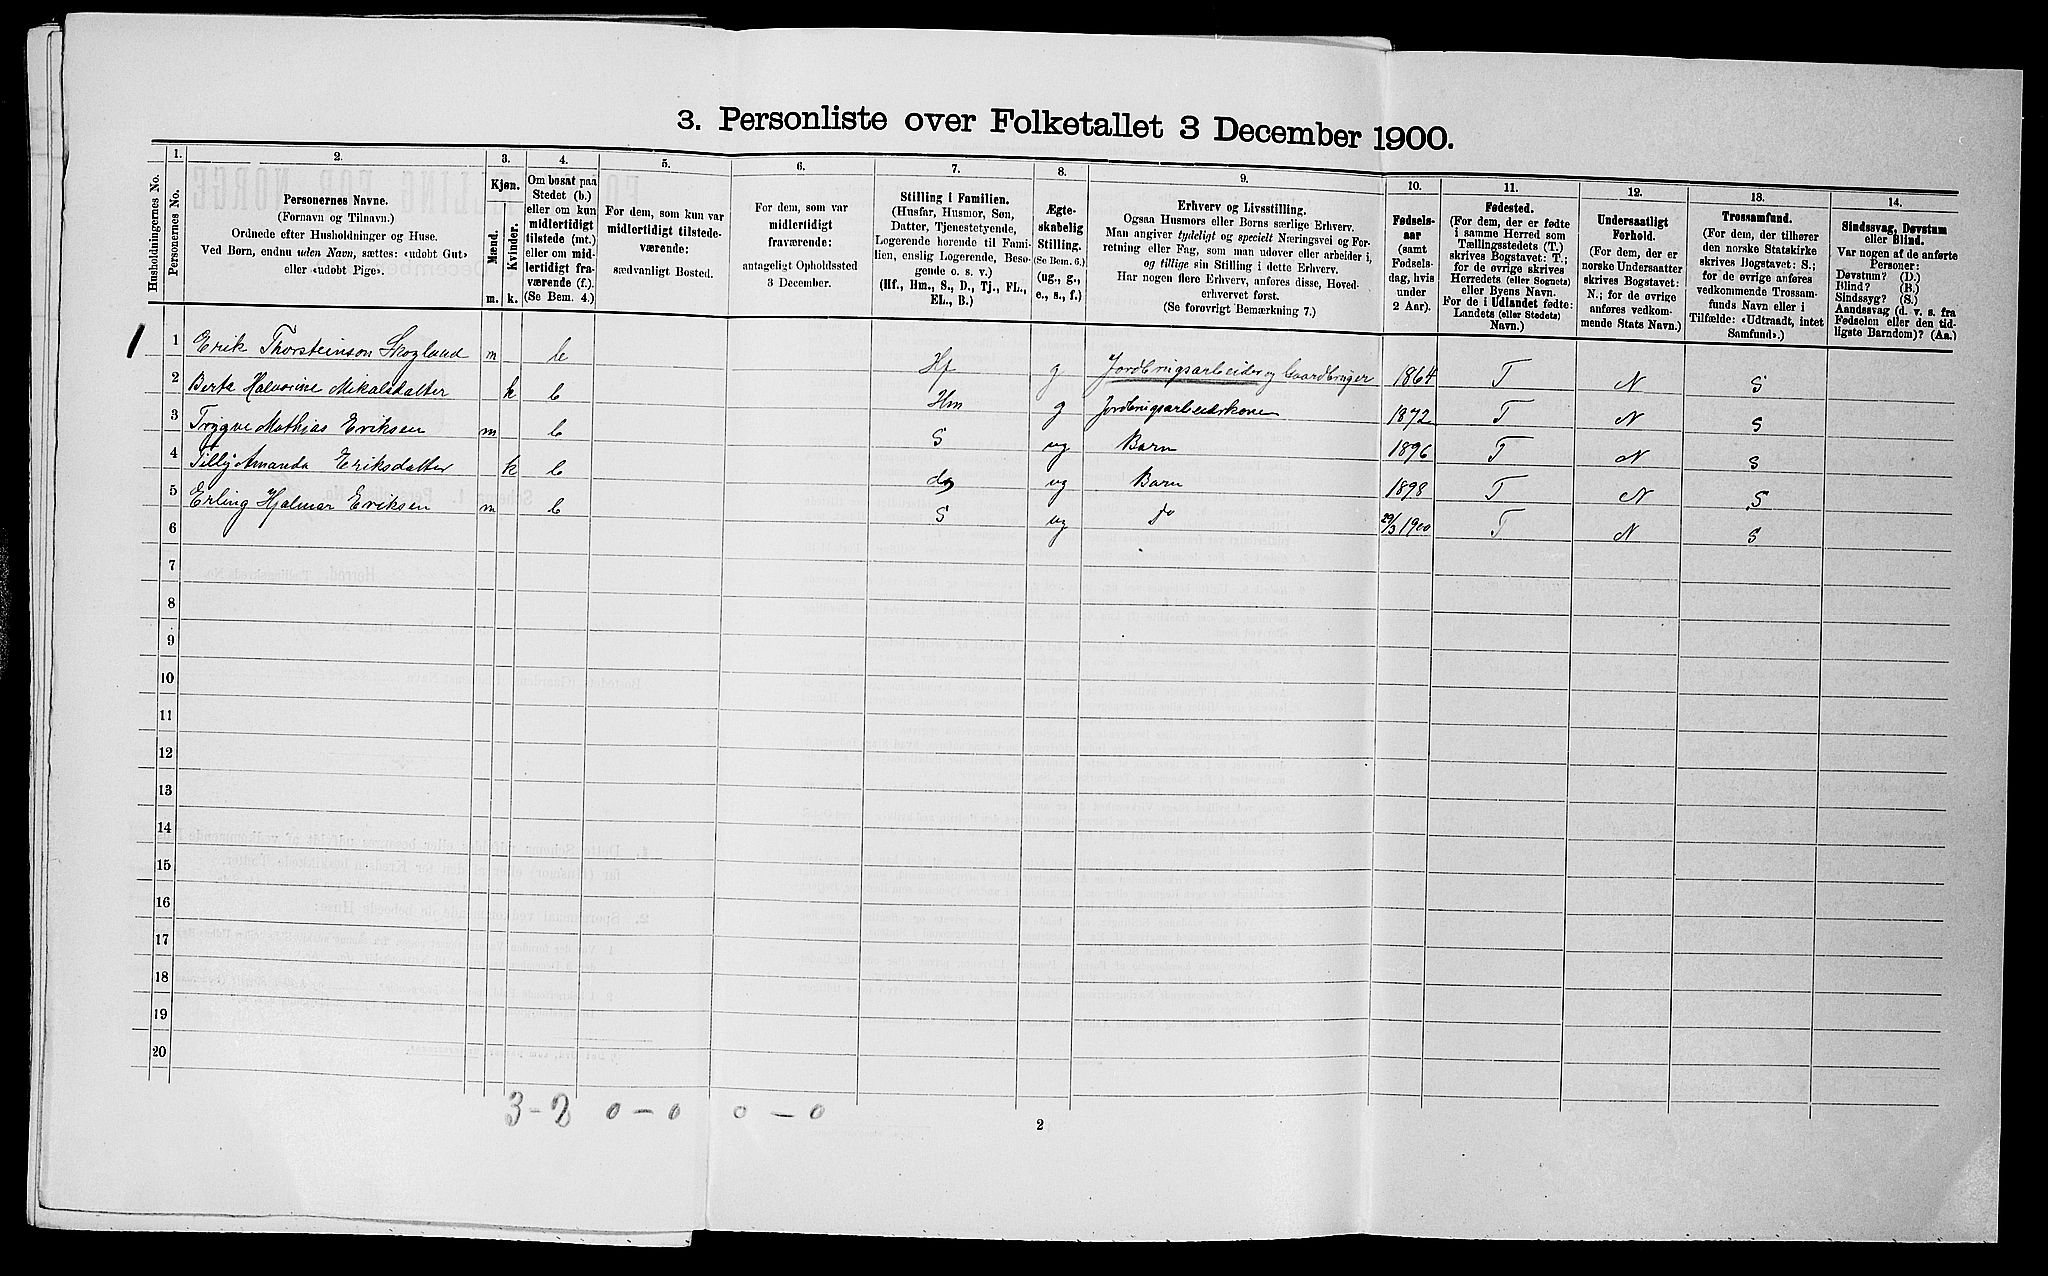 3. Personliste over Folketallet 3 December 1900.
Husholdningernes No.
1.
Personernes No.
2.
Personernes Navne.
(Fornavn og Tilnavn.)
Ordnede efter Husholdninger og Huse.
Ved Børn, endnu uden Navn, sættes: «udøbt Gut»
eller «udøbt Pige».
3.
Kjøn.
Mænd.
Kvinder.
m.
k.
4.
Om bosat paa
Stedet (b.)
eller om kun
midlertidigt
tilstede (mt.)
eller om mid-
lertidigt fra-
værende (f.).
(Se Bem. 4.)
5.
For dem, som kun var
midlertidigt tilstede-
værende:
sædvanligt Bosted.
6.
For dem, som var
midlertidigt
fraværende:
antageligt Opholdssted
3 December.
7.
Stilling i Familien.
(Husfar, Husmor, Søn,
Datter, Tjenestetyende,
Logerende hørende til Fami-
lien, enslig Logerende, Besø-
gende o. s. v.)
(Hf., Hm., S., D., Tj., FL.,
EL., B.)
8.
Ægte-
skabelig
Stilling.
(Se Bem. 6.)
(ug., g.,
e., s., f.)
9.
Erhverv og Livsstilling.
Ogsaa Husmors eller Børns særlige Erhverv.
Man angiver tydeligt og specielt Næringsvei og For-
retning eller Fag, som man udøver eller arbeider i,
og tillige sin Stilling i dette Erhverv.
Har nogen flere Erhverv, anføres disse, Hoved-
erhvervet først.
(Se forøvrigt Bemærkning 7.)
10.
Fødsels-
aar
(samt
Fødsels-
dag, hvis
under
2 Aar).
11.
Fødested.
(For dem, der er fødte
i samme Herred som
Tællingsstedets (T.)
skrives Bogstavet: T.;
for de øvrige skrives
Herredets (eller Sognets)
eller Byens Navn.
For de i Udlandet fødte:
Landets (eller Stedets)
Navn.)
12.
Undersaatligt
Forhold.
(For dem, der er
norske Undersaatter
skrives Bogstavet:
N.; for de øvrige
anføres vedkom-
mende Stats Navn.)
13.
Trossamfund.
(For dem, der tilhører
den norske Statskirke
skrives Bogstavet: S.;
for de øvrige anføres
vedkommende Trossam-
funds Navn eller i
Tilfælde: «Udtraadt, intet
Samfund».)
14.
Sindssvag, Døvstum
eller Blind.
Var nogen af de anførte
Personer:
Døvstum? (D.)
Blind? (B.)
Sindssyg? (S.)
Aandssvag (d. v. s. fra
Fødselen eller den tid-
ligste Barndom)? (Aa.)
1 Erik Thorsteinson Skogland m b Hf g Jordbrugsarbeider og Gaardbruger 1864 T N S
2 Berta Halvorine Mikalsdatter k b Hm g Jordbrugsarbeiderkone 1872 T N S
3 Trygve Mathias Eriksen m b S ug Barn 1896 T N S
4 Tilly Amanda Eriksdatter k b d ug Barn 1898 T N S
5 Erling Hjalmar Eriksen m b S ug do 29/3 1900 T N S
6
7
8
9
10
11
12
13
14
15
16
17
18
19
20
3-2 0-0 0-0
2